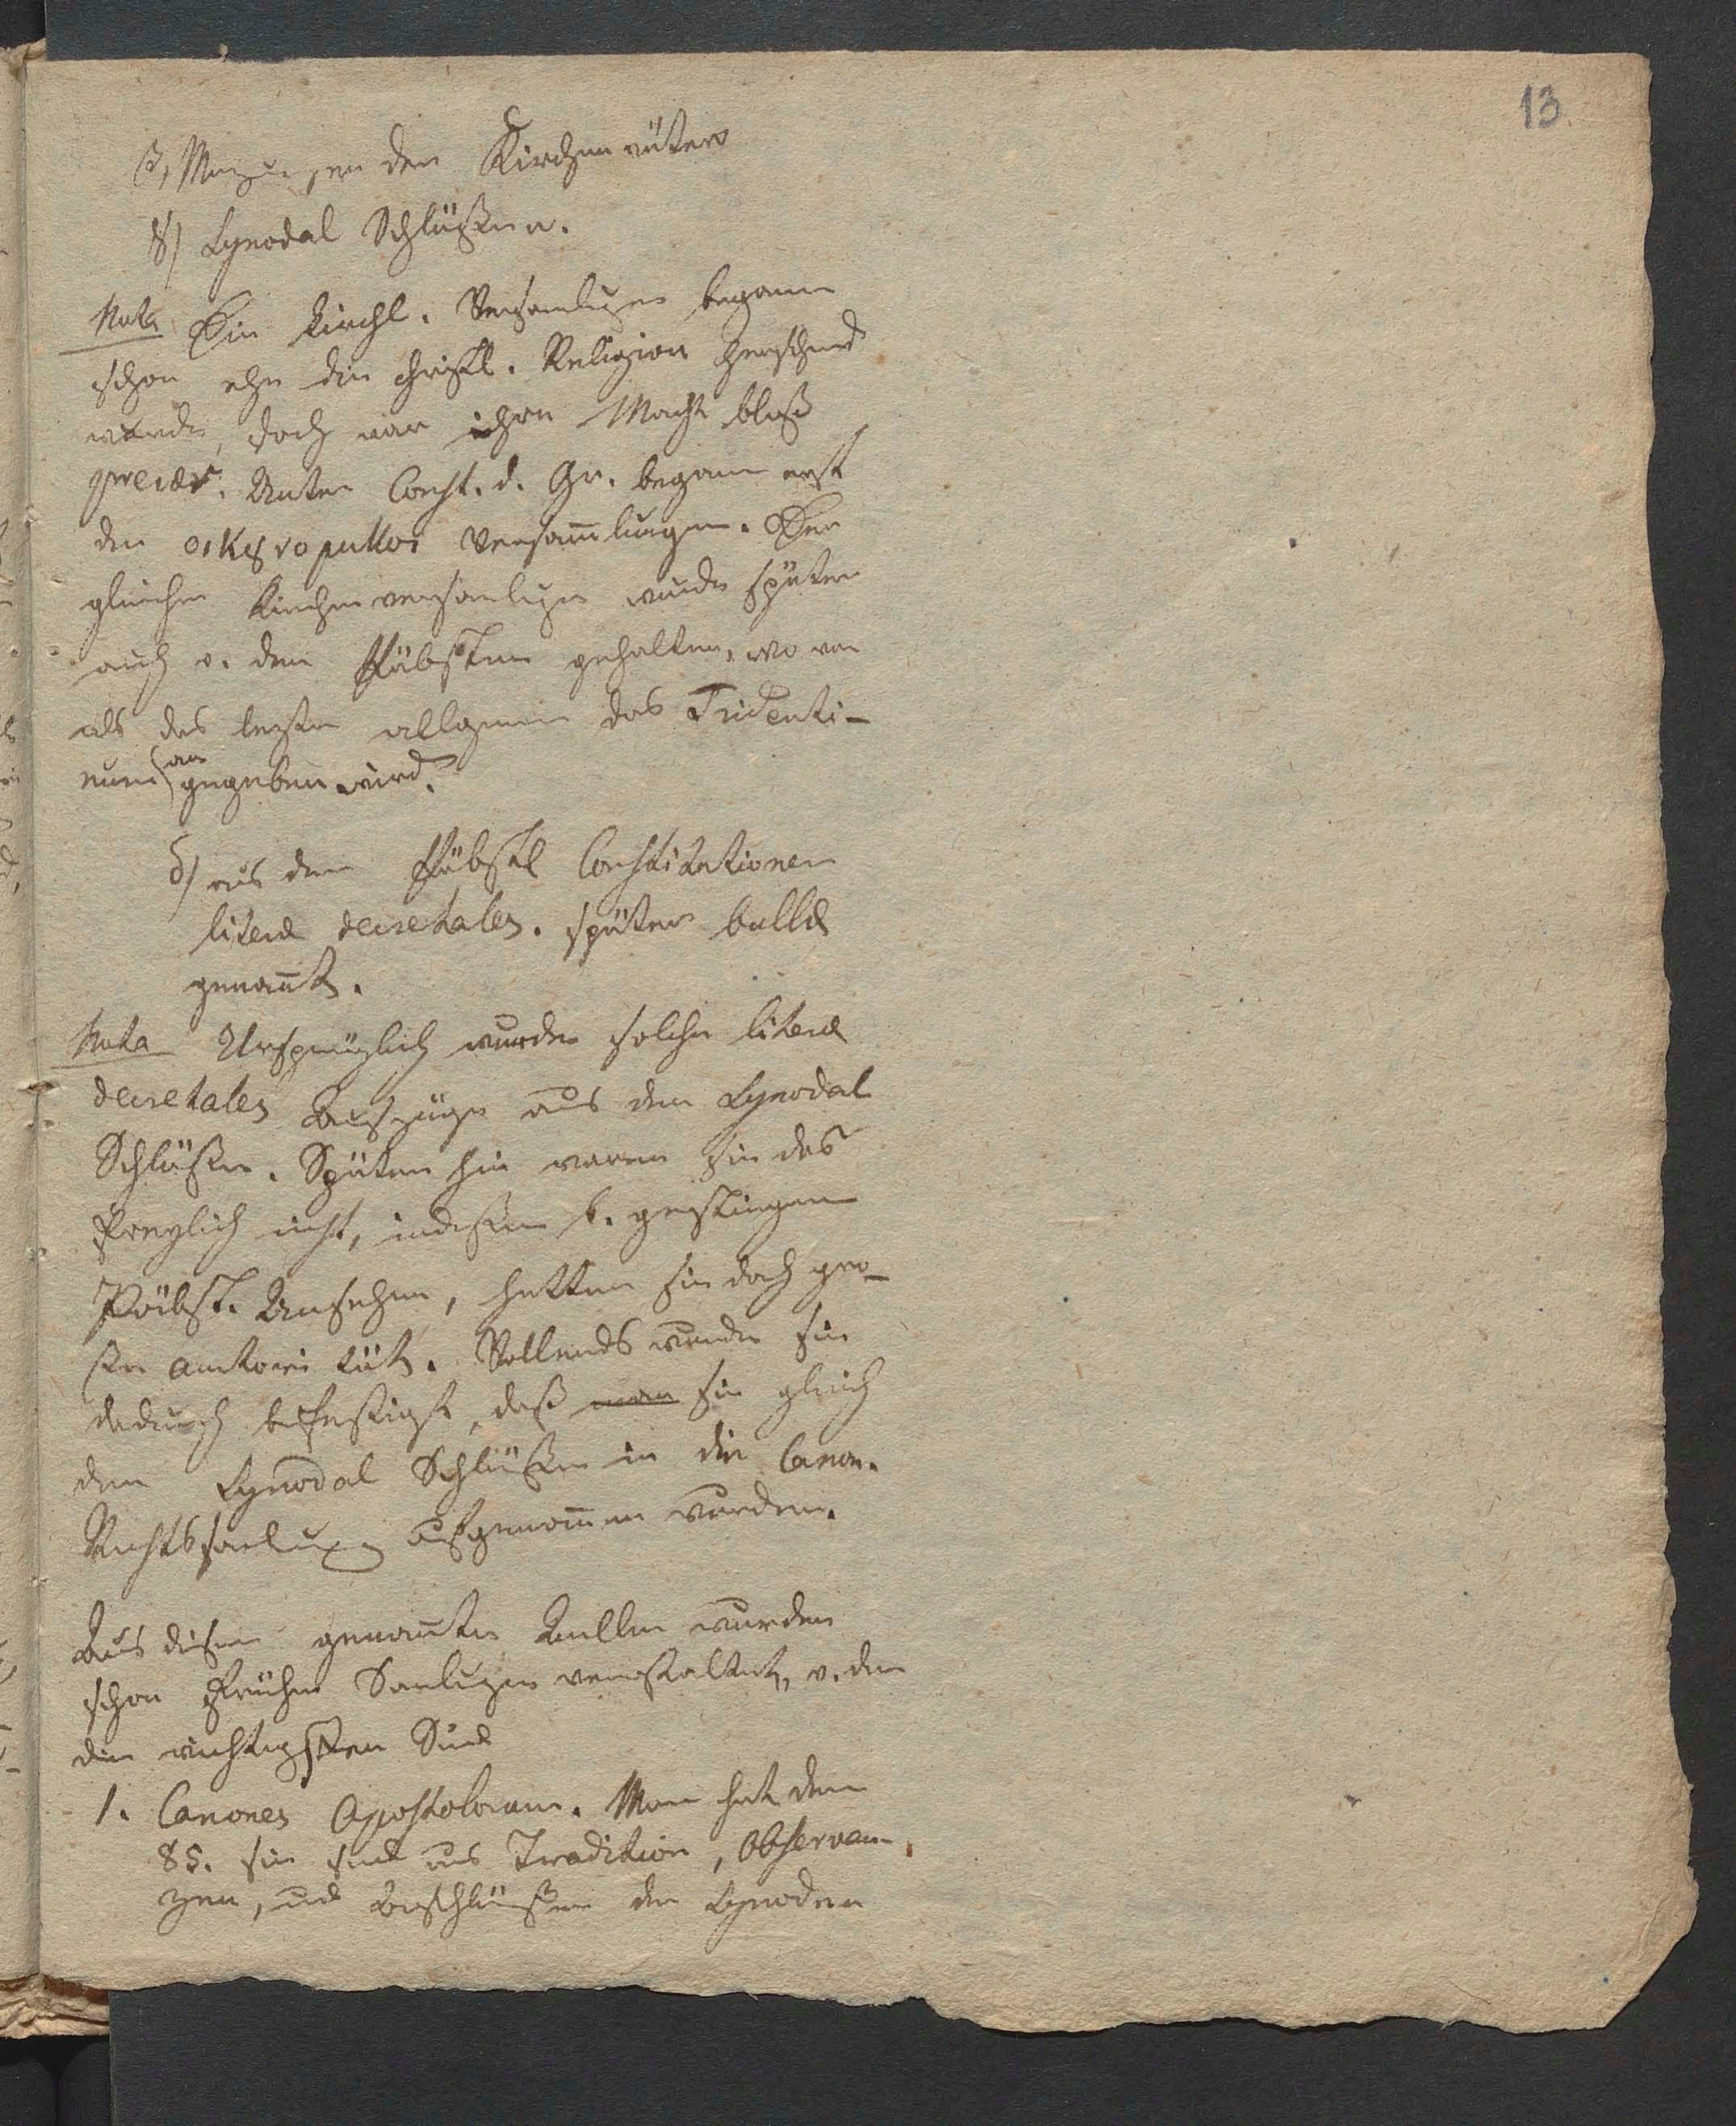 13
β, Meinungen der Kirchenväter
γ) Synodal Schlüßen.
Nota Die kirchl. Versamlungen began
schon ehe die christl. Religion herrschend
wurde, doch war ihre Macht bloß
precär. Unter Const. d. Gr. began erst
die οικȣνομικοι Versam̄lungen. Der
gleichen Kirchenversamlungen wurde später
auch v. den Päbsten gehalten, wo von
als das lezte allgemein das Tridenti-
num angegeben wird.
δ) aus den Päbstl Constitutionen
literæ decretales. später bullæ
genan̄t.
Nota Ursprünglich wurden solche literæ
decretales Auszüge aus den Synodal
Schlüßen. Später hin waren sie das
freylich nicht, indeßen b. gestiegenem
Päbstl. Ansehen, hatten sie doch gro-
ße Autorität. Vollends wurden sie
dadurch befestigt, daß man sie gleich
den Synodal Schlüßen in die Canon.
Rechtssamlung aufgenom̄en wurden.
Aus diesen genan̄ten Quellen wurden
schon frühe Samlungen veranstaltet, v. den
die wichtigsten Sind
1. Canones Apostolorum. Man hat deren
85. sie sind aus Tradition, Observan
zen, und Beschlüßen der Synoden